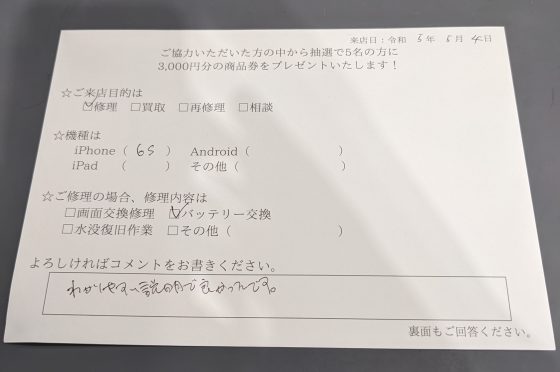 来店日：令和 5年 6月 4日
ご協力いただいた方の中から抽選で5名の方に
3,000円分の商品券をプレゼントいたします！
☆ご来店目的は
☑修理 □買取 □再修理 □相談
☆機種は
iPhone（ 6S ） Android（ ）
iPad （ ） その他（ ）
☆ご修理の場合、修理内容は
□画面交換修理 ☑バッテリー交換
□水没復旧作業 □その他（ ）
よろしければコメントをお書きください。
わかりやすい説明で良かったです。
裏面もご回答ください。